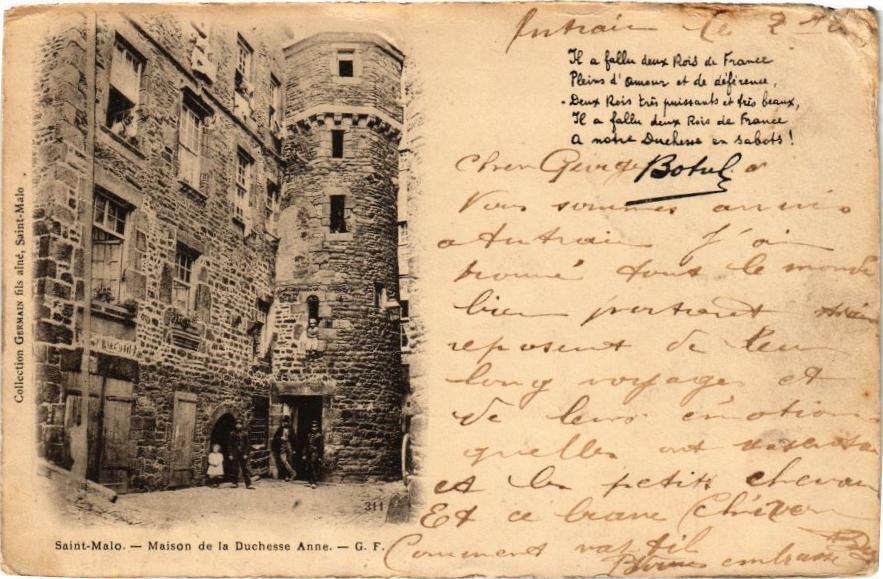 Antrain le 2
Il a fallu deux Rois de France
Pleins d'amour et de déférence,
- Deux Rois très puissants et très beaux,
Il a fallu deux Rois de France
A notre Duchesse en sabots !
Botrel
Cher George
Vous sommes arrivés
a Antrain J'ai
trouvé tout le monde
bien portant
reposent de leur
long voyage et
de leurs émotion
quelles ont
et les petits chevaux
Et ce brave
Comment vat til
embrasse
Collection GERMAIN fils aîné, Saint-Malo
311
Saint-Malo. — Maison de la Duchesse Anne. — G. F.